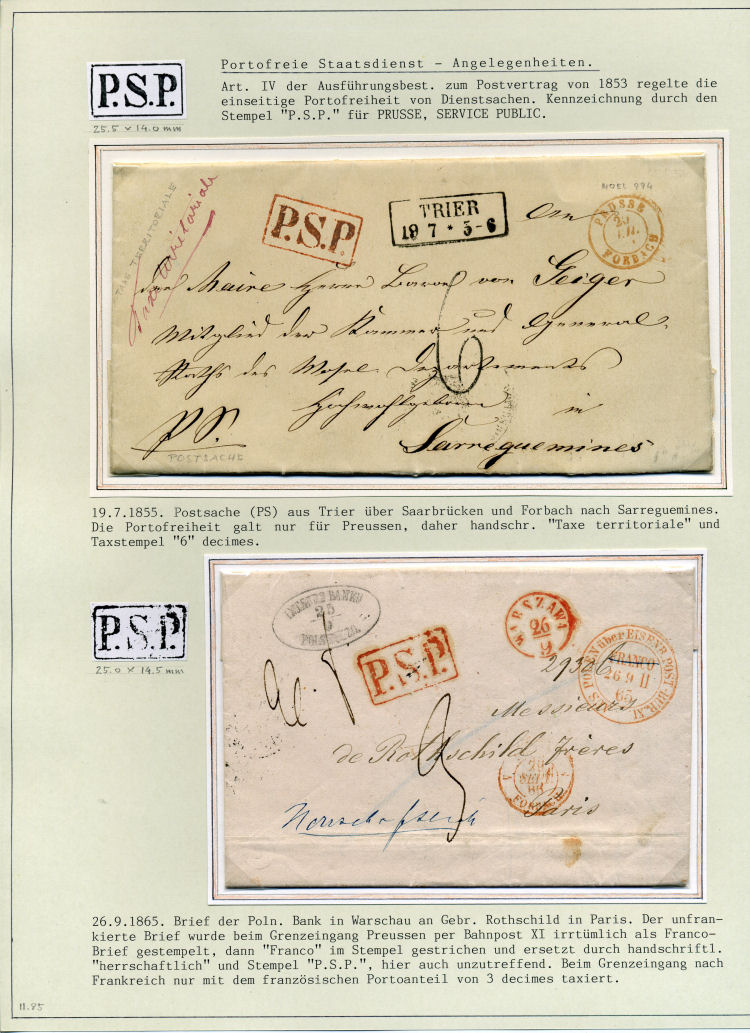 Portofreie Staatsdienst - Angelegenheiten.
P.S.P.
25.5 x 14.0 mm
Art. IV der Ausführungsbest. zum Postvertrag von 1853 regelte die
einseitige Portofreiheit von Dienstsachen. Kennzeichnung durch den
Stempel "P.S.P." für PRUSSE, SERVICE PUBLIC.
NOEL 994
TAXE TERRITORIALE
Taxe territoriale
P.S.P.
TRIER
19 7 * 5-6
An
PRUSSE
FORBACH
Maire Herrn Baron von Geiger
Mitglied der Kammer und General
Raths des Mosel Departements
6
Hochwohlgeboren in
P.S.
POSTSACHE
Sarreguemines
19.7.1855. Postsache (PS) aus Trier über Saarbrücken und Forbach nach Sarreguemines.
Die Portofreiheit galt nur für Preussen, daher handschr. "Taxe territoriale" und
Taxstempel "6" decimes.
P.S.P.
25.0 x 14.5 mm
25
WARSZAWA
26
9
P.S.P.
POLEN über EISENB. POST-BUR. XI
FRANCO
26 9 II
65
29506
Messieurs
de Rothschild Frères
3
SEPT.
FORBACH
Paris
26.9.1865. Brief der Poln. Bank in Warschau an Gebr. Rothschild in Paris. Der unfran-
kierte Brief wurde beim Grenzeingang Preussen per Bahnpost XI irrtümlich als Franco-
Brief gestempelt, dann "Franco" im Stempel gestrichen und ersetzt durch handschriftl.
"herrschaftlich" und Stempel "P.S.P.", hier auch unzutreffend. Beim Grenzeingang nach
Frankreich nur mit dem französischen Portoanteil von 3 decimes taxiert.
11.85